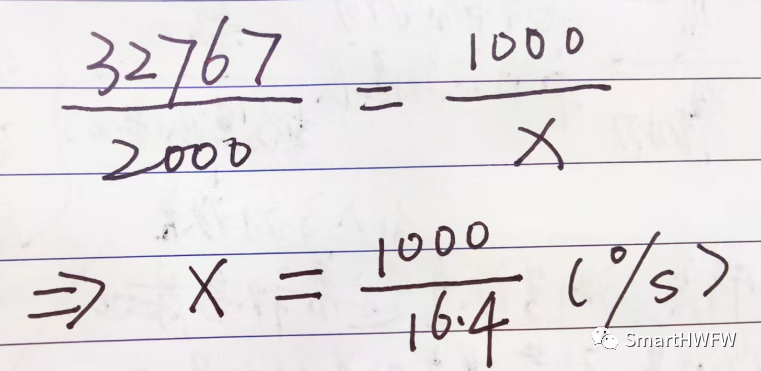 32767/2000 = 1000/X
⇒ X = 1000/16.4 (°/s)
SmartHWFW